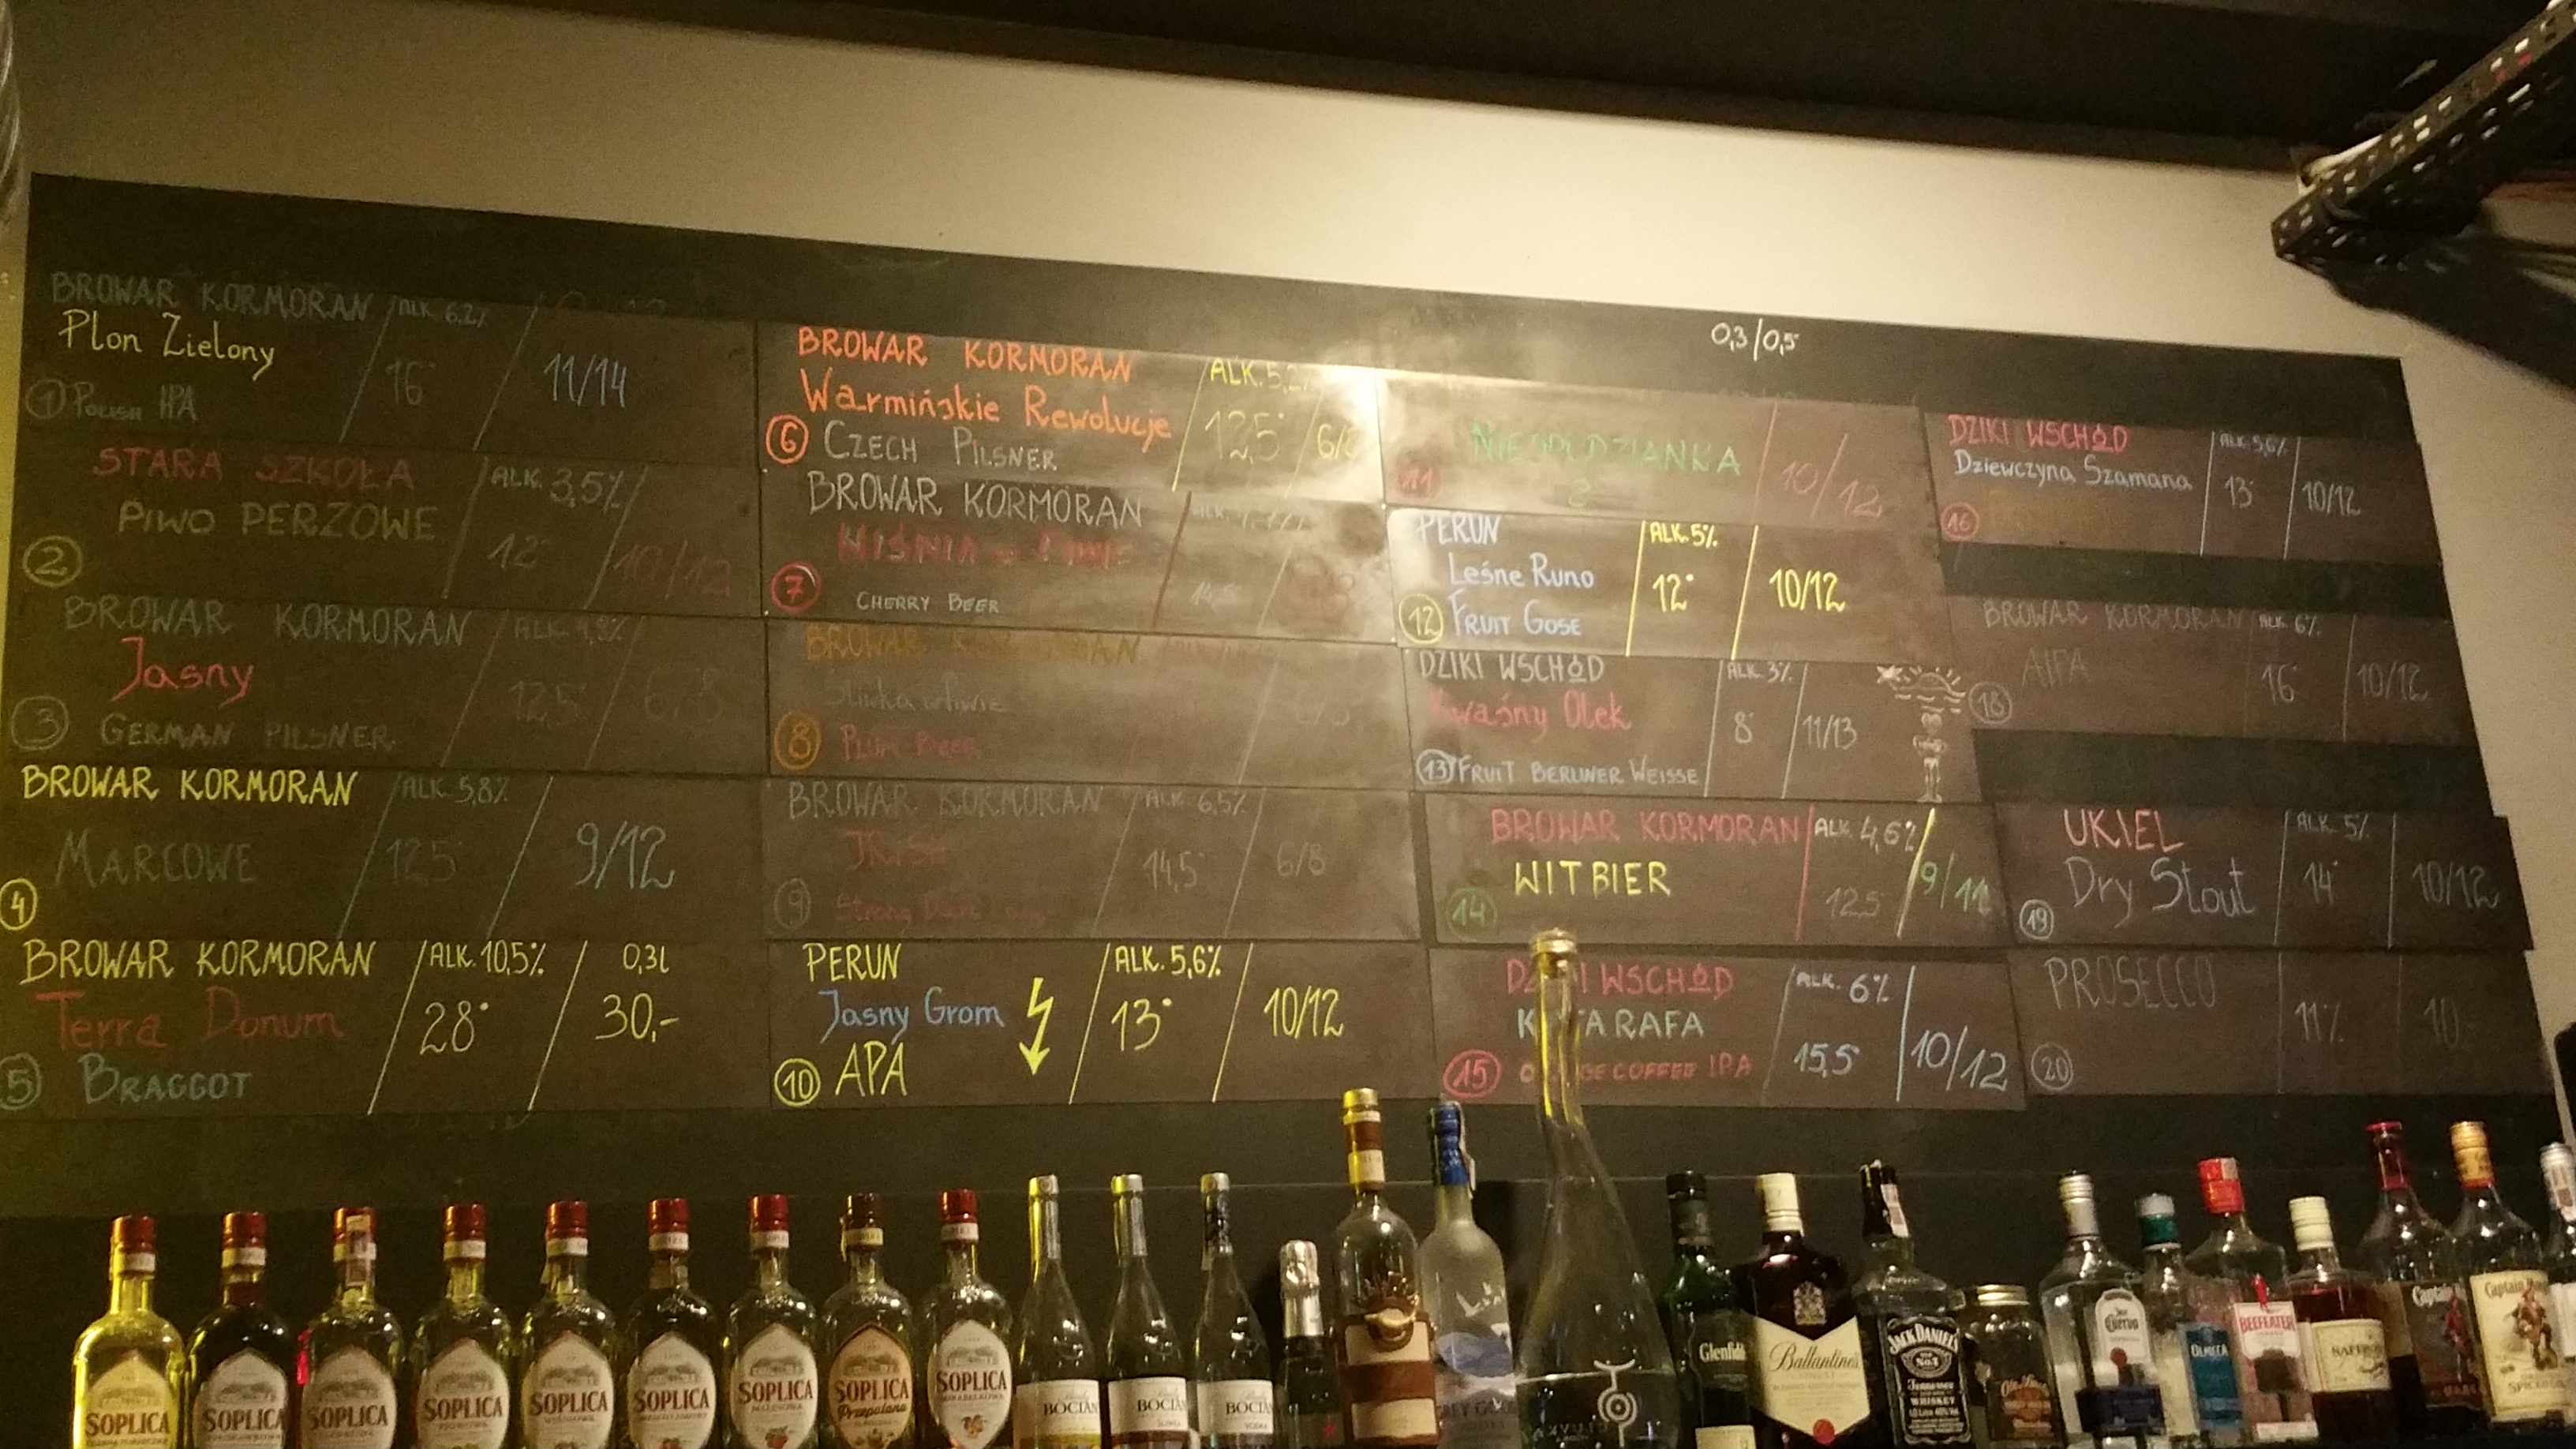 0,3/0,5
BROWAR KORMORAN ALK. 6,2%
Plon Zielony
16° 11/14
1 POLISH IPA
STARA SZKOŁA ALK. 3,5%
PIWO PERZOWE
2 12° 10/12
BROWAR KORMORAN ALK. 4,8%
Jasny
12,5° 6/8
3 GERMAN PILSNER
BROWAR KORMORAN ALK. 5,8%
MARCOWE 12,5° 9/12
4
BROWAR KORMORAN ALK. 10,5% 0,3L
Terra Donum 28° 30,-
5 BRAGGOT
BROWAR KORMORAN ALK. 5,2%
Warmińskie Rewolucje 12,5° 6/8
6 CZECH PILSNER
BROWAR KORMORAN
WIŚNIA w PIWIE
7 CHERRY BEER
BROWAR KORMORAN
Śliwka w Piwie
8 PLUM BEER
BROWAR KORMORAN ALK. 6,5%
14,5° 6/8
9 Strong Dark Lager
PERUN ALK. 5,6%
Jasny Grom 13° 10/12
10 APA
NIESPODZIANKA 10/12
11 ?
PERUN ALK. 5%
Leśne Runo 12° 10/12
12 FRUIT GOSE
DZIKI WSCHÓD ALK. 3%
Kwaśny Olek 8° 11/13
13 FRUIT BERLINER WEISSE
BROWAR KORMORAN ALK. 4,6%
WITBIER 12,5° 9/11
14
DZIKI WSCHÓD ALK. 6%
RAFA
15 COFFEE IPA 15,5° 10/12
DZIKI WSCHÓD ALK. 5,6%
Dziewczyna Szamana 13° 10/12
16
BROWAR KORMORAN ALK. 6%
AIPA 16° 10/12
18
UKIEL ALK. 5%
Dry Stout 14° 10/12
19
PROSECCO 11% 10
20
SOPLICA
SOPLICA
SOPLICA
SOPLICA
SOPLICA
SOPLICA
SOPLICA
SOPLICA
Przepalana
SOPLICA
BOCIAN
BOCIAN
BOCIAN
VODKA
Glenfiddich
Ballantine's
JACK DANIEL'S
Old No.7
Tennessee
WHISKEY
Cuervo
OLMECA
BEEFEATER
SAFFRON
Captain
Captain
SPICED